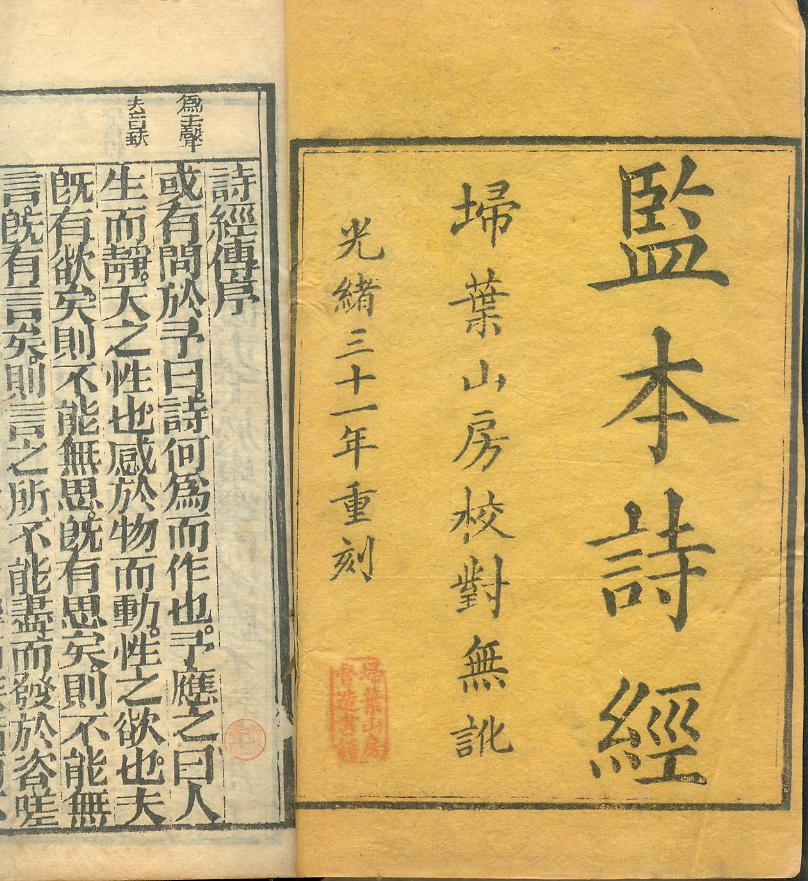 監本詩經
埽葉山房校對無訛
光緒三十一年重刻
埽葉山房
督造書籍
為去聲
夫音扶
詩經傳序
或有問於予曰詩何為而作也予應之曰人
生而靜天之性也感於物而動性之欲也夫
既有欲矣則不能無思既有思矣則不能無
言既有言矣則言之所不能盡而發於咨嗟